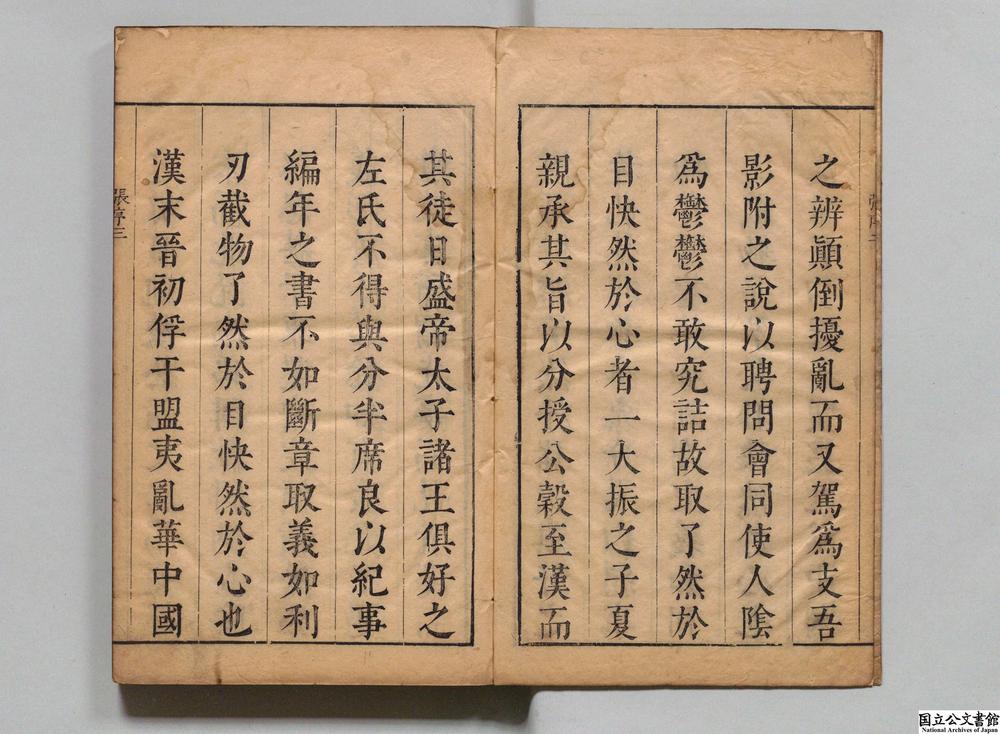 之辨顚倒擾亂而又駕爲支吾
影附之說以聘問會同使人陰
爲鬱鬱不敢究詰故取了然於
目快然於心者一大振之子夏
親承其旨以分授公穀至漢而
其徒日盛帝太子諸王俱好之
左氏不得與分半席良以紀事
編年之書不如斷章取義如利
刃截物了然於目快然於心也
漢末晉初俘干盟夷亂華中國
張序三
国立公文書館
National Archives of Japan